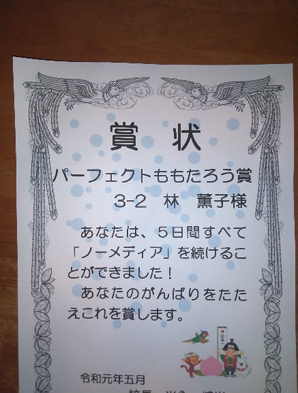 賞 状
パーフェクトももたろう賞
3-2 林 薫子様
あなたは、5日間すべて
「ノーメディア」を続けるこ
とができました!
あなたのがんばりをたた
えこれを賞します。
令和元年五月